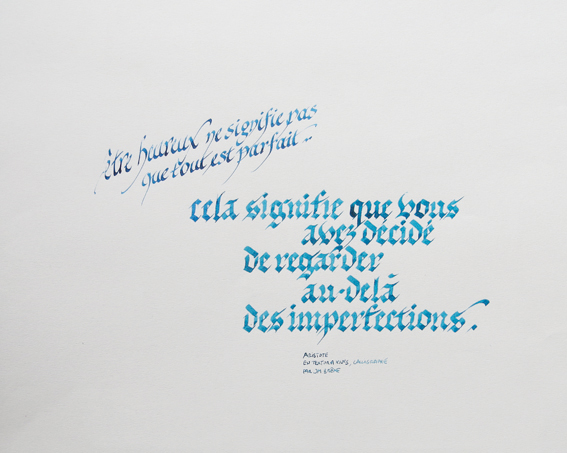 être heureux ne signifie pas
que tout est parfait ..
cela signifie que vous
avez décidé
de regarder
au-delà
des imperfections.
ARISTOTE
CALLIGRAPHIE
PAR JM